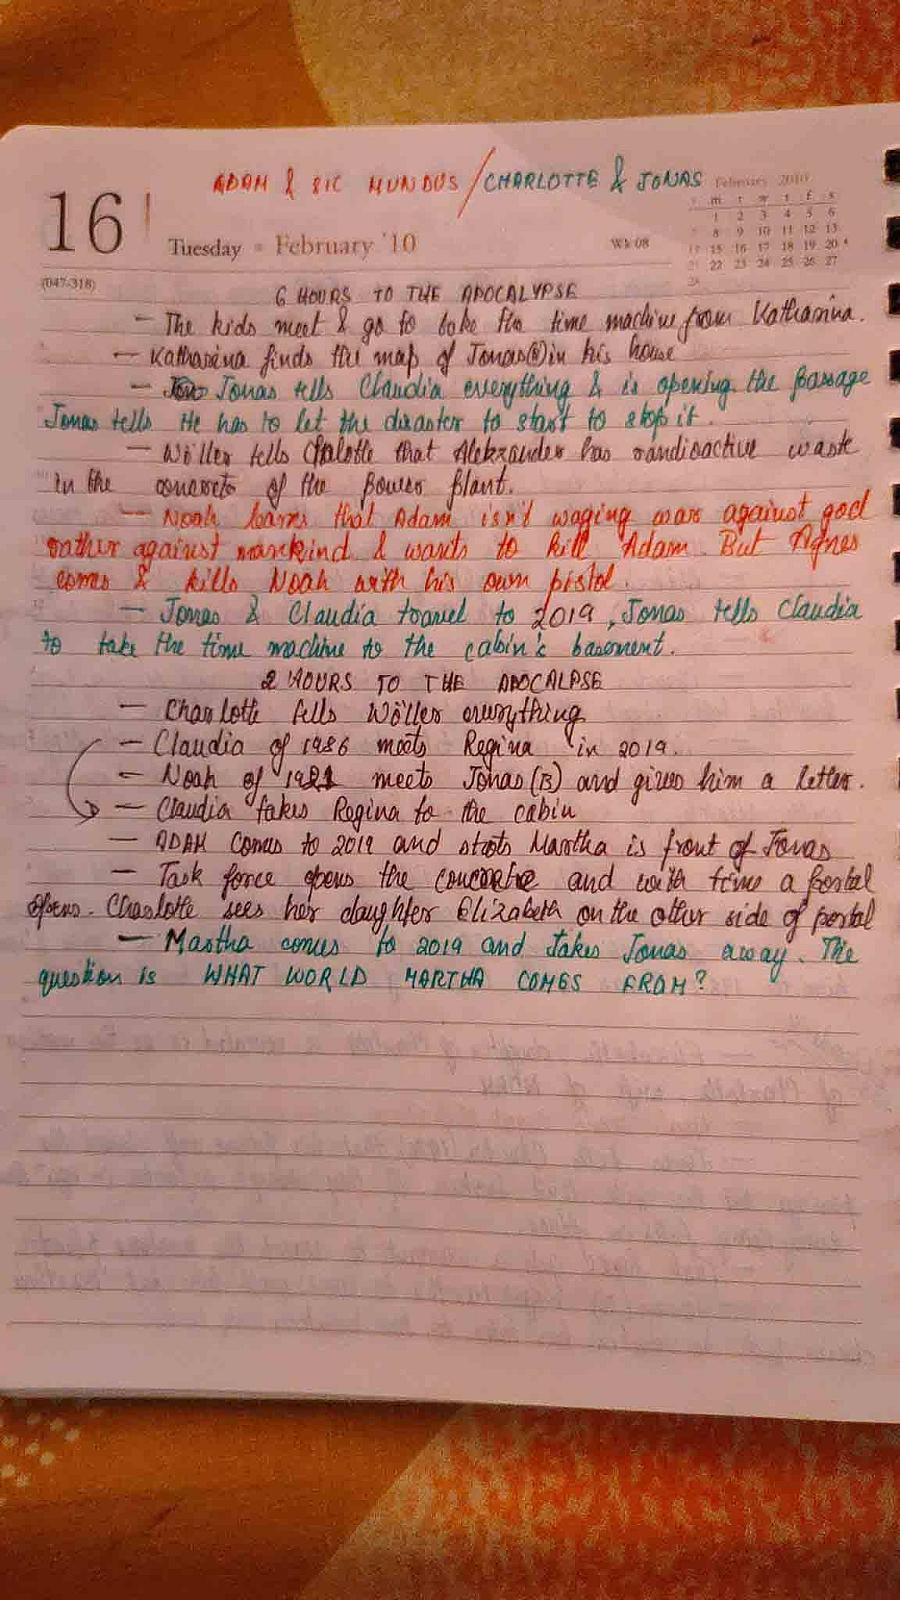 ADAM & SIC MUNDUS / CHARLOTTE & JONAS
February 2010
m t w t f s
1 2 3 4 5 6
7 8 9 10 11 12 13
14 15 16 17 18 19 20
21 22 23 24 25 26 27
28
16
Tuesday February '10 Wk 08
(047-318)
6 HOURS TO THE APOCALYPSE
— The kids meet & go to take the time machine from Katharina.
— Katharina finds the map of Jonas(B) in his house
— Jonas tells Claudia everything & is opening the passage
Jonas tells He has to let the disaster to start to stop it.
— Wöller tells Chalotte that Alekzander has randioactive waste
in the concrete of the power plant.
— Noah learns that Adam isn't waging war against god
rather against mankind & wants to kill Adam. But Agnes
comes & kills Noah with his own pistol.
— Jonas & Claudia travel to 2019, Jonas tells Claudia
to take the time machine to the cabin's basement.
2 HOURS TO THE APOCALPSE
— Charlotte tells Wöller everything
— Claudia of 1986 meets Regina in 2019.
— Noah of 1921 meets Jonas(B) and gives him a letter.
— Claudia takes Regina to the cabin
— ADAM comes to 2019 and shots Martha is front of Jonas
— Task force opens the concretre and with time a portal
opens. Charlotte sees her daughter Elizabeth on the other side of portal
— Martha comes to 2019 and takes Jonas away. The
question is WHAT WORLD MARTHA COMES FROM?